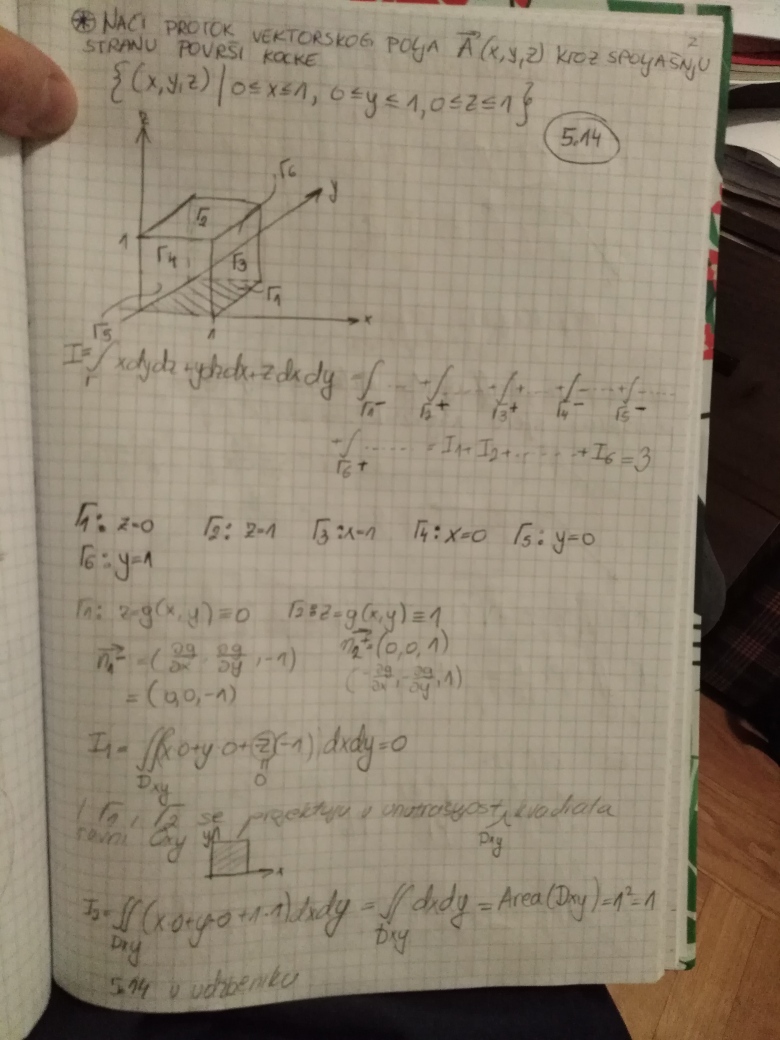 ⊛ NAĆI PROTOK VEKTORSKOG POLJA A⃗(x,y,z) KROZ SPOLJAŠNJU
STRANU POVRŠI KOCKE
{(x,y,z) | 0≤x≤1, 0≤y≤1, 0≤z≤1}
5.14
z
Γ6
y
Γ2
1
Γ4
Γ3
Γ1
Γ5
1
x
I=∫_Γ xdydz+ydzdx+zdxdy = ∫_Γ1- ... + ∫_Γ2+ ... + ∫_Γ3+ ... + ∫_Γ4- ... + ∫_Γ5- ...
+ ∫_Γ6+ ...... = I1+I2+......+I6=3
Γ1: z=0 Γ2: z=1 Γ3: x=1 Γ4: x=0 Γ5: y=0
Γ6: y=1
Γ1: z=g(x,y)≡0 Γ2: z=g(x,y)≡1
n1⃗- = (∂g/∂x, ∂g/∂y, -1) n2⃗+=(0,0,1)
= (0,0,-1) (-∂g/∂x, -∂g/∂y, 1)
I1= ∬_Dxy (x·0+y·0+z(-1)) dxdy=0
0
I Γ1 i Γ2 se projektuju u unutrašnjost kvadrata
ravni Oxy y x Dxy
I2= ∬_Dxy (x·0+y·0+1·1)dxdy = ∬_Dxy dxdy = Area(Dxy)=1²=1
5.14 u udžbeniku